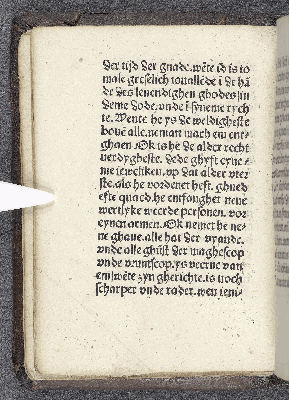 der tijd der gnade. wēte id is to
male greselich touallēde ī de hā
de des leuendighen ghodes in
deme dode. vnde ī syneme rych
te. Wente he ys de weldigheste
bouē alle. neman mach em ent-
ghaen. Ok is he de alder recht
verdygheste. de de ghyft eyne-
me iewelken. vp dat alder vter
ste. als he vordenet heft. ghued
efte quaed. he entfanghet nene
wertlyke weerde personen. vor
eynen armen. Ok nemet he ne-
ne ghaue. alle hat der vyande.
vnde alle ghūst der maghescop
vnde vruntscop. ys veerne van
em. wēte zyn gherichte. is noch
scharper vnde rader. wen iem-